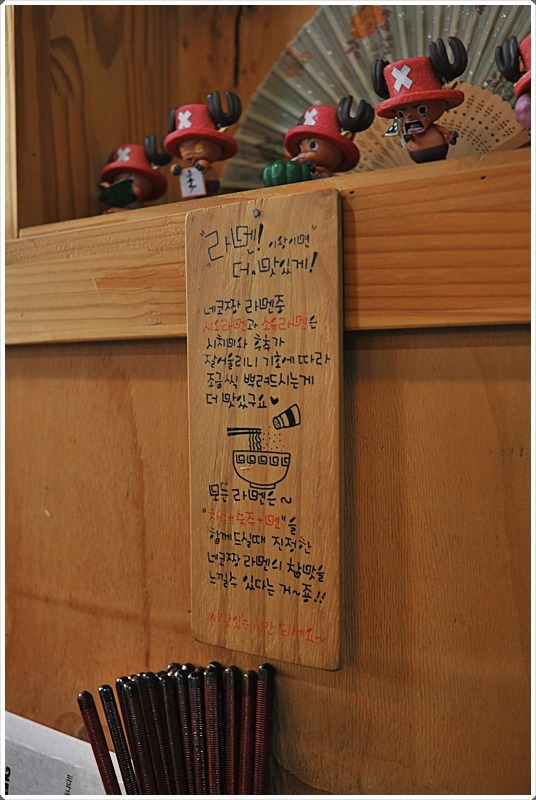 "라멘! 이왕이면"
더. 맛있게!
네코짱 라멘중
시오라멘과 소유라멘은
시치미와 후추가
잘어울리니 기호에 따라
조금씩 뿌려드시는게
더 맛있구요♥
모든 라멘은~
숙주+면"을
함께드실때 진정한
네코짱 라멘의 참맛을
느낄수 있다는 거~죵!!
맛있는 시간 되세요~